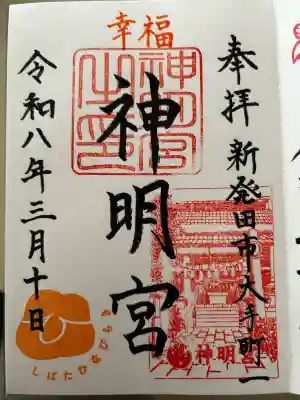 奉拝 新発田市大手町一
幸福
神明宮
神明宮
令和八年三月十日
しばたひな